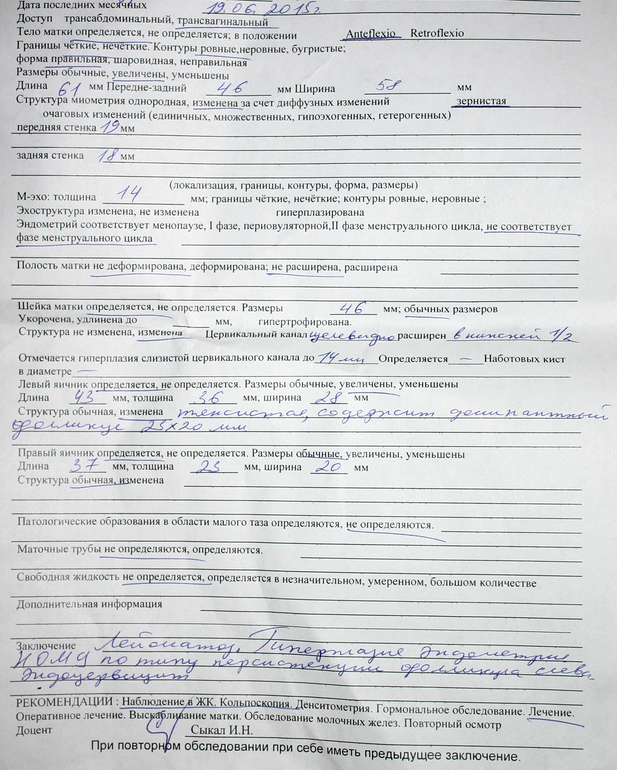 Дата последних месячных 19.06.2015г
Доступ трансабдоминальный, трансвагинальный
Тело матки определяется, не определяется; в положении Anteflexio Retroflexio
Границы чёткие, нечёткие. Контуры ровные,неровные, бугристые;
форма правильная, шаровидная, неправильная
Размеры обычные, увеличены, уменьшены
Длина 61 мм Передне-задний 46 мм Ширина 58 мм
Структура миометрия однородная, изменена за счет диффузных изменений зернистая
очаговых изменений (единичных, множественных, гипоэхогенных, гетерогенных)
передняя стенка 19 мм
задняя стенка 18 мм
(локализация, границы, контуры, форма, размеры)
М-эхо: толщина 14 мм; границы чёткие, нечёткие; контуры ровные, неровные ;
Эхоструктура изменена, не изменена гиперплазирована
Эндометрий соответствует менопаузе, I фазе, периовуляторной,II фазе менструального цикла, не соответствует
фазе менструального цикла
Полость матки не деформирована, деформирована; не расширена, расширена
Шейка матки определяется, не определяется. Размеры 46 мм; обычных размеров
Укорочена, удлинена до мм, гипертрофирована.
Структура не изменена, изменена Цервикальный канал щелевидно расширен в нижней 1/2
Отмечается гиперплазия слизистой цервикального канала до 14 мм Определяется — Наботовых кист
в диаметре —
Левый яичник определяется, не определяется. Размеры обычные, увеличены, уменьшены
Длина 43 мм, толщина 36 мм, ширина 28 мм
Структура обычная, изменена кистозная, содержит доминантный
фолликул 23х20 мм
Правый яичник определяется, не определяется. Размеры обычные, увеличены, уменьшены
Длина 37 мм, толщина 23 мм, ширина 20 мм
Структура обычная, изменена
Патологические образования в области малого таза определяются, не определяются.
Маточные трубы не определяются, определяются.
Свободная жидкость не определяется, определяется в незначительном, умеренном, большом количестве
Дополнительная информация
Заключение Лейоматоз, Гиперплазия эндометрия
НОМЦ по типу персистенции фолликула слева
Эндоцервицит
РЕКОМЕНДАЦИИ : Наблюдение в ЖК. Кольпоскопия. Денситометрия. Гормональное обследование. Лечение.
Оперативное лечение. Выскабливание матки. Обследование молочных желез. Повторный осмотр
Доцент Сыкал И.Н.
При повторном обследовании при себе иметь предыдущее заключение.